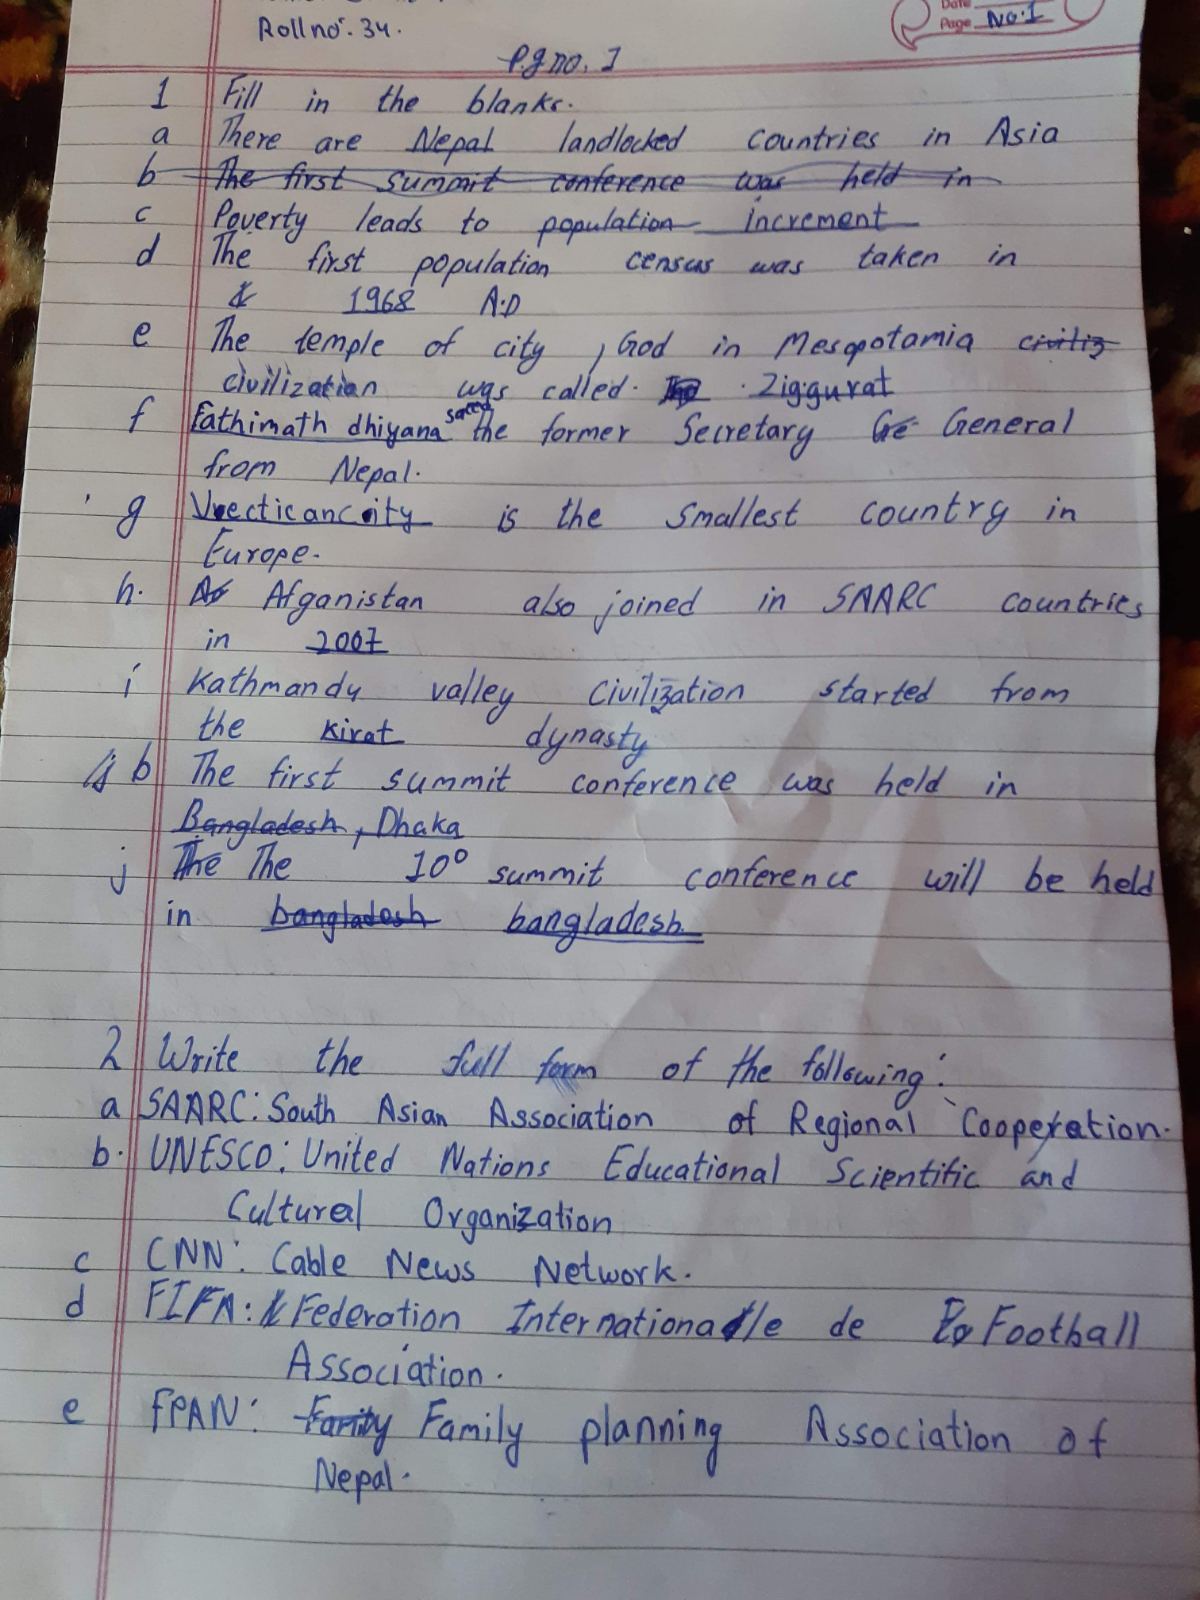 Roll no: 34.
Date
Page No:1
P.g no. 1
1 Fill in the blanks.
a There are Nepal landlocked countries in Asia
b The first summit conference was held in
c Poverty leads to population increment
d The first population census was taken in
1968 A.D
e The temple of city, God in Mesopotamia civiliz
civilization was called. Ziggurat
f Fathimath dhiyana saeed the former Secretary Ge General
from Nepal.
g Vecticancity is the smallest country in
Europe.
h. Af Afganistan also joined in SAARC countries
in 2007
i Kathmandu valley civilization started from
the kirat dynasty
b The first summit conference was held in
Bangladesh, Dhaka
j The The 10° summit conference will be held
in bangladesh bangladesh.
2 Write the full form of the following:
a SAARC: South Asian Association of Regional Cooperation.
b. UNESCO: United Nations Educational Scientific and
Cultural Organization
c CNN: Cable News Network.
d FIFA: Federation Internationale de Fo Football
Association.
e FPAN: Family planning Association of
Nepal.